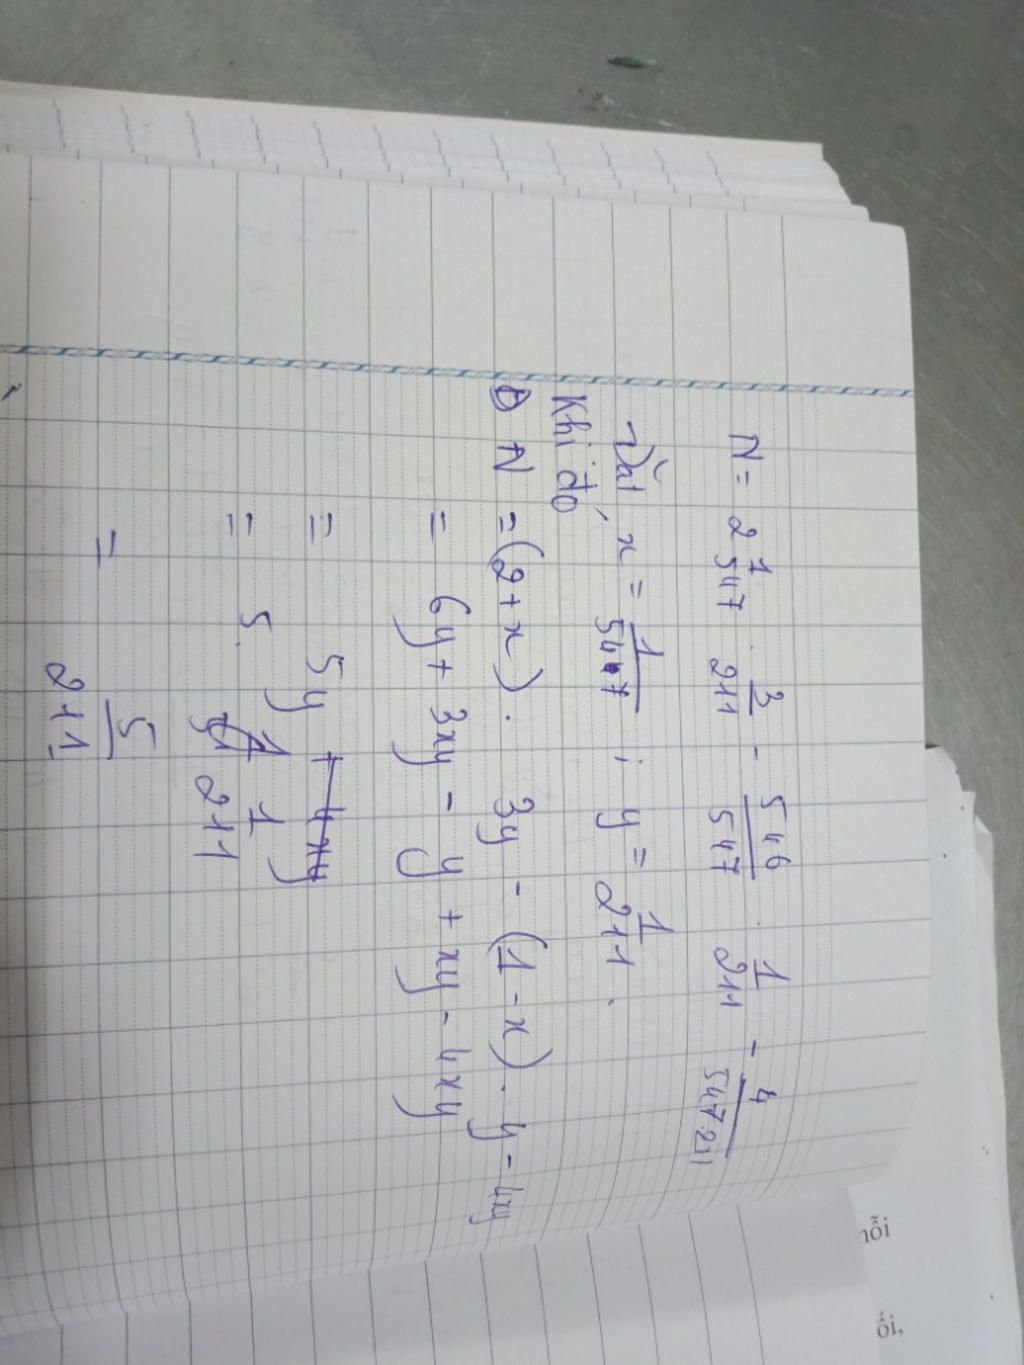 N = 2 1/547 . 3/211 - 546/547 . 1/211 - 4/547.211
Đặt x = 1/547 ; y = 1/211 .
Khi đó
N = (2 + x) . 3y - (1 - x) . y - 4xy
= 6y + 3xy - y + xy - 4xy
= 5y
= 5. 1/211
= 5/211
ỗi
ối,